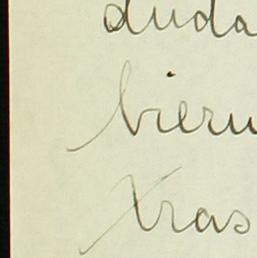 duda
bien
tras